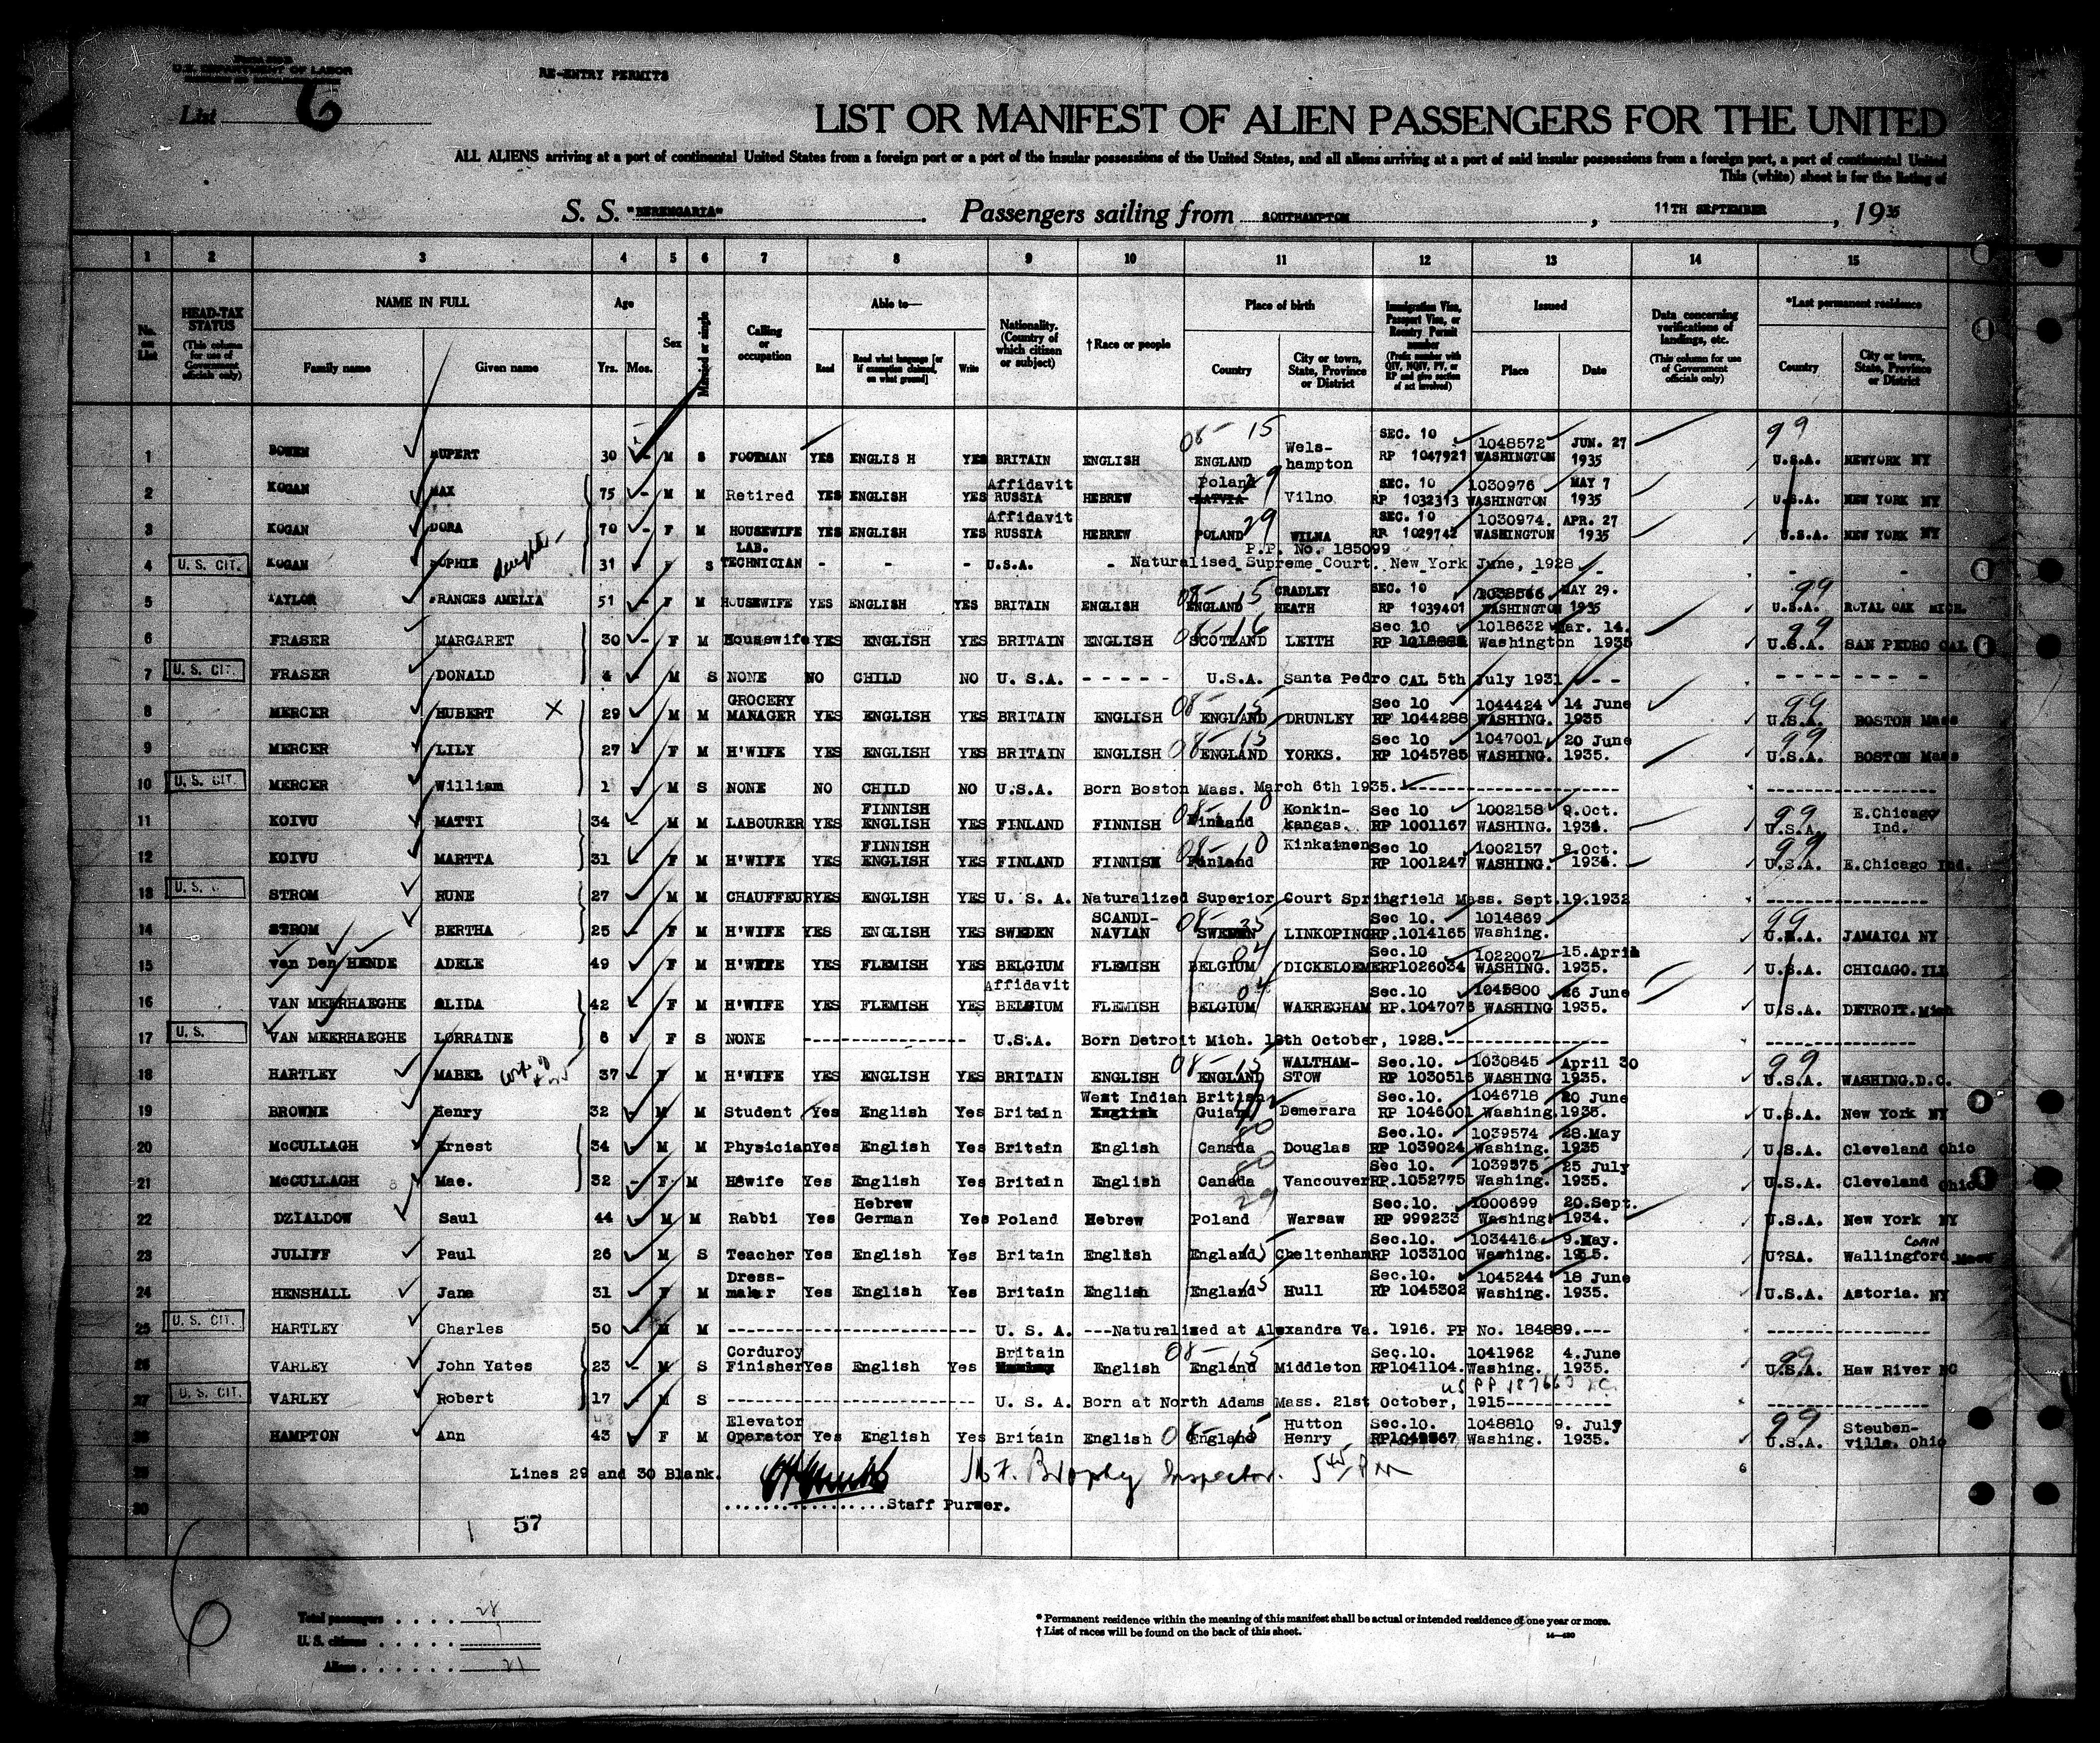 U.S. DEPARTMENT OF LABOR
RE-ENTRY PERMITS
List 6
LIST OR MANIFEST OF ALIEN PASSENGERS FOR THE UNITED
ALL ALIENS arriving at a port of continental United States from a foreign port or a port of the insular possessions of the United States, and all aliens arriving at a port of said insular possessions from a foreign port, a port of continental United
This (white) sheet is for the listing of
S. S. "BERENGARIA" . Passengers sailing from SOUTHAMPTON , 11TH SEPTEMBER , 1935
1 2 3 4 5 6 7 8 9 10 11 12 13 14 15
No. on List
HEAD-TAX STATUS (This column for use of Government officials only)
NAME IN FULL Family name Given name
Age Yrs. Mos.
Sex
Married or single
Calling or occupation
Able to— Read Read what language [or if exemption claimed, on what ground] Write
Nationality. (Country of which citizen or subject)
†Race or people
Place of birth Country City or town, State, Province or District
Immigration Visa, Passport Visa, or Reentry Permit number (Prefix number with QIV, NQIV, PV, or RP and give section of act involved)
Issued Place Date
Data concerning verifications of landings, etc. (This column for use of Government officials only)
*Last permanent residence Country City or town, State, Province or District
1 BOWEN RUPERT 30 - M S FOOTMAN YES ENGLIS H YES BRITAIN ENGLISH 08-15 ENGLAND Wels-hampton SEC. 10 RP 1047921 1048572 WASHINGTON JUN. 27 1935 99 U.S.A. NEWYORK NY
2 KOGAN MAX 75 - M M Retired YES ENGLISH YES Affidavit RUSSIA HEBREW Poland LATVIA Vilno SEC. 10 RP 1032313 1030976 WASHINGTON MAY 7 1935 U.S.A. NEW YORK NY
3 KOGAN DORA 70 - F M HOUSEWIFE YES ENGLISH YES Affidavit RUSSIA HEBREW POLAND 29 WILNA SEC. 10 RP 1029742 1030974. WASHINGTON APR. 27 1935 U.S.A. NEW YORK NY
4 U. S. CIT. KOGAN SOPHIE daughter 31 F S LAB. TECHNICIAN - - - U.S.A. - P.P. No. 185099 Naturalised Supreme Court. New York June, 1928 - - -
5 TAYLOR FRANCES AMELIA 51 - F M HOUSEWIFE YES ENGLISH YES BRITAIN ENGLISH 08-15 ENGLAND CRADLEY HEATH SEC. 10 RP 1039401 1038566 WASHINGTON MAY 29. 1935 99 U.S.A. ROYAL OAK MICH.
6 FRASER MARGARET 30 - F M Housewife YES ENGLISH YES BRITAIN ENGLISH 08-16 SCOTLAND LEITH Sec 10 RP 1018632 Washington Mar. 14. 1935 99 U.S.A. SAN PEDRO CAL
7 U. S. CIT. FRASER DONALD 4 M S NONE NO CHILD NO U. S.A. - - - - - U.S.A. Santa Pedro CAL 5th July 1931 - - -
8 MERCER HUBERT X 29 M M GROCERY MANAGER YES ENGLISH YES BRITAIN ENGLISH 08-15 ENGLAND DRUNLEY Sec 10 RP 1044288 1044424 WASHING. 14 June 1935 99 U.S.A. BOSTON Mass
9 MERCER LILY 27 F M H'WIFE YES ENGLISH YES BRITAIN ENGLISH 08-15 ENGLAND YORKS. Sec 10 RP 1045785 1047001 WASHING. 20 June 1935. 99 U.S.A. BOSTON Mass
10 U. S. CIT. MERCER William 1 M S NONE NO CHILD NO U.S.A. Born Boston Mass. March 6th 1935.
11 KOIVU MATTI 34 - M M LABOURER YES FINNISH ENGLISH YES FINLAND FINNISH 08-10 Finland Konkin-kangas. Sec 10 RP 1001167 1002158 WASHING. 9.Oct. 1934. 99 U.S.A. E.Chicago Ind.
12 KOIVU MARTTA 31 F M H'WIFE YES FINNISH ENGLISH YES FINLAND FINNISH 08-10 Finland Kinkainen Sec 10 RP 1001247 1002157 WASHING. 9.Oct. 1934. 99 U.S.A. E.Chicago Ind.
13 U. S. STROM RUNE 27 M M CHAUFFEUR YES ENGLISH YES U. S. A. Naturalized Superior Court Springfield Mass. Sept.19.1932
14 STROM BERTHA 25 - F M H'WIFE YES ENGLISH YES SWEDEN SCANDI-NAVIAN 08-25 SWEDEN LINKOPING Sec 10. RP.1014165 1014869 Washing. 99 U.S.A. JAMAICA NY
15 van Den HENDE ADELE 49 F M H'WIFE YES FLEMISH YES BELGIUM FLEMISH 04 BELGIUM DICKELOEME Sec.10 RP1026034 1022007 WASHING. 15.April 1935. U.S.A. CHICAGO.ILL
16 VAN MEERHAEGHE ALIDA 42 F M H'WIFE YES FLEMISH YES Affidavit BELGIUM FLEMISH 04 BELGIUM WAEREGHAM Sec.10 RP.1047076 1045800 WASHING 26 June 1935. U.S.A. DETROIT.Mich
17 U. S. VAN MEERHAEGHE LORRAINE 6 F S NONE U.S.A. Born Detroit Mich. 18th October, 1928.
18 HARTLEY MABEL 37 F M H'WIFE YES ENGLISH YES BRITAIN ENGLISH 08-15 ENGLAND WALTHAM-STOW Sec.10. RP 1030516 1030845 WASHING April 30 1935. 99 U.S.A. WASHING.D.C.
19 BROWNE Henry 32 - M M Student Yes English Yes Britain West Indian English British Guiana Demerara Sec.10. RP 1046001 1046718 Washing. 20 June 1935. U.S.A. New York NY
20 McCULLAGH Ernest 34 - M M Physician Yes English Yes Britain English Canada 80 Douglas Sec.10. RP 1039024 1039574 Washing. 28.May 1935 U.S.A. Cleveland Ohio
21 McCULLAGH Mae. 32 - F. M Hswife Yes English Yes Britain English Canada 80 Vancouver Sec 10. RP.1052775 1039575 Washing. 25 July 1935. U.S.A. Cleveland Ohio
22 DZIALDOW Saul 44 - M M Rabbi Yes Hebrew German Yes Poland Hebrew 29 Poland Warsaw Sec.10. RP 999233 1000699 Washing. 20.Sept. 1934. U.S.A. New York NY
23 JULIFF Paul 26 M S Teacher Yes English Yes Britain English England 15 Cheltenham Sec.10. RP 1033100 1034416 Washing. 9.May. 1935. U?SA. Wallingford CONN
24 HENSHALL Jane 31 F M Dress-maker Yes English Yes Britain English England 15 Hull Sec.10. RP 1045302 1045244 Washing. 18 June 1935. U.S.A. Astoria. NY
25 U. S. CIT. HARTLEY Charles 50 M M U. S. A. ---Naturalised at Alexandra Va. 1916. PP No. 184889.---
26 VARLEY John Yates 23 - M S Corduroy Finisher Yes English Yes Britain English 08-15 England Middleton Sec.10. RP1041104. 1041962 Washing. 4.June 1935. 99 U.S.A. Haw River NC
27 U. S. CIT. VARLEY Robert 17 M S U. S. A. Born at North Adams Mass. 21st October, 1915 US PP 187663
28 HAMPTON Ann 43 F M Elevator Operator Yes English Yes Britain English 08-15 England Hutton Henry Sec.10. RP1049567 1048810 Washing. 9. July 1935. 99 U.S.A. Steuben-ville. Ohio
29 Lines 29 and 30 Blank. Brophy Inspector. 5 45 PM
30 ................Staff Purser.
57
6
Total passengers . . . . 28
U. S. citizens . . . . .
Aliens . . . . . . 21
* Permanent residence within the meaning of this manifest shall be actual or intended residence of one year or more.
† List of races will be found on the back of this sheet.
14—430